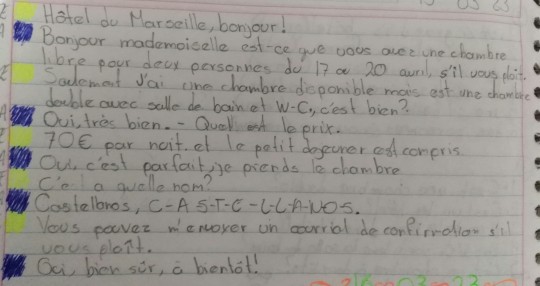 Hôtel du Marseille, bonjour!
Bonjour mademoiselle est-ce que vous avez une chambre
libre pour deux personnes du 17 au 20 avril, s'il vous plaît.
Seulement J'ai une chambre disponible mais est une chambre
double avec salle de bain et W-C, c'est bien?
Oui, très bien. - Quell est le prix.
70€ par nuit. et le petit dejeuner est compris
Oui, c'est parfait, je prends la chambre
C'est a quelle nom?
Castelbnos, C-A S-T-C-L-L-A-NOS.
Vous pouvez m'envoyer un courrial de confirmation s'il
vous plaît.
Oui, bien sûr, à bientôt!